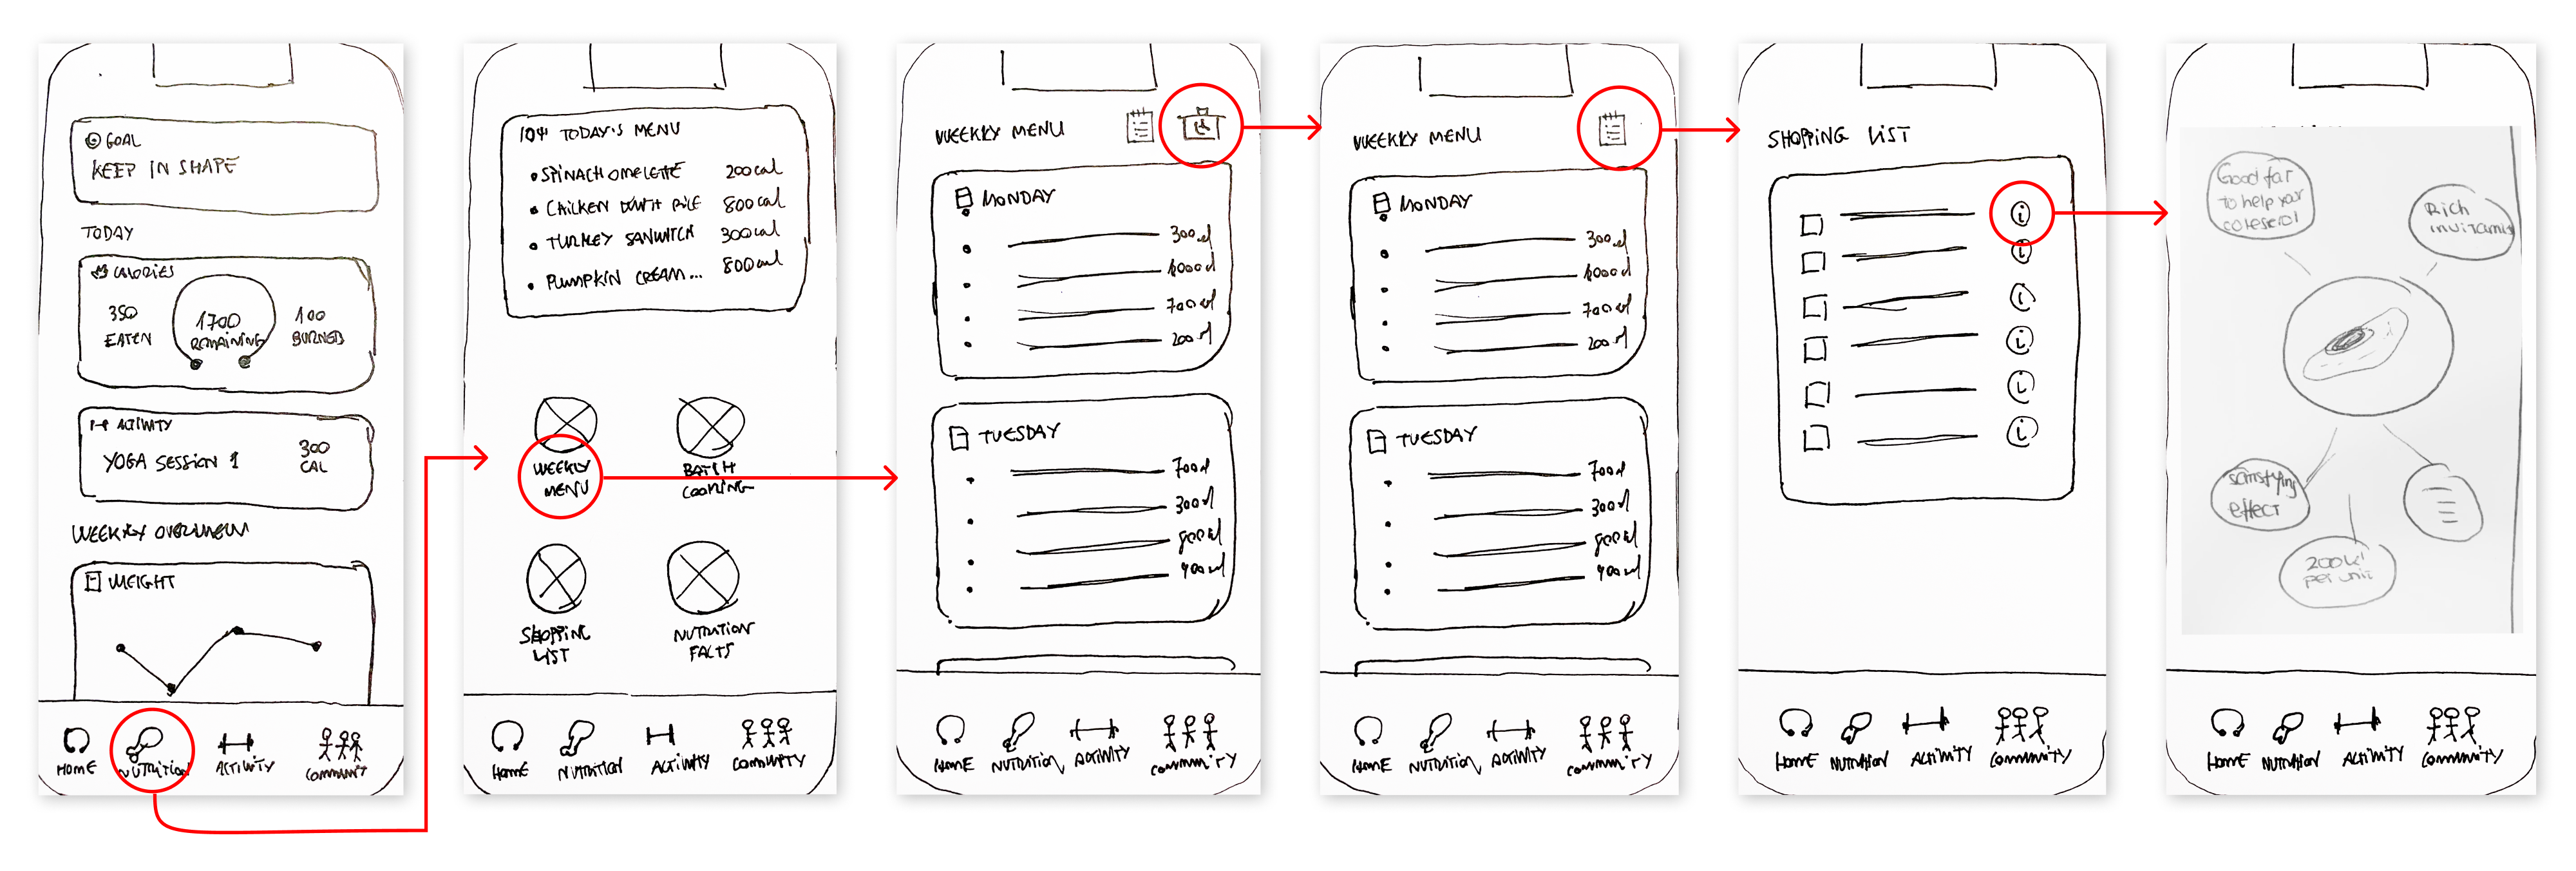 GOAL
KEEP IN SHAPE
TODAY
CALORIES
350
EATEN
1700
REMAINING
100
BURNED
ACTIVITY
YOGA SESSION 1
300
CAL
WEEKLY OVERVIEW
WEIGHT
HOME
NUTRITION
ACTIVITY
COMMUNIT
TODAY'S MENU
SPINACH OMELETTE 200cal
CHICKEN WITH RICE 800cal
TURKEY SANWITCH 300cal
PUMPKIN CREAM... 800cal
WEEKLY
MENU
BATCH
COOKING
SHOPPING
LIST
NUTRITION
FACTS
HOME
NUTRITION
ACTIVITY
COMMUNITY
WEEKLY MENU
MONDAY
300cal
1000cal
700cal
200cal
TUESDAY
700cal
300cal
800cal
400cal
HOME
NUTRITION
ACTIVITY
COMMUNITY
WEEKLY MENU
MONDAY
300cal
1000cal
700cal
200cal
TUESDAY
700cal
300cal
800cal
400cal
HOME
NUTRITION
ACTIVITY
COMMUNITY
SHOPPING LIST
i
i
i
i
i
i
HOME
NUTRITION
ACTIVITY
COMMUNITY
Good fat
to help your
colesterol
Rich
in vitamins
satisfying
effect
200
per unit
HOME
NUTRITION
ACTIVITY
COMMUNITY